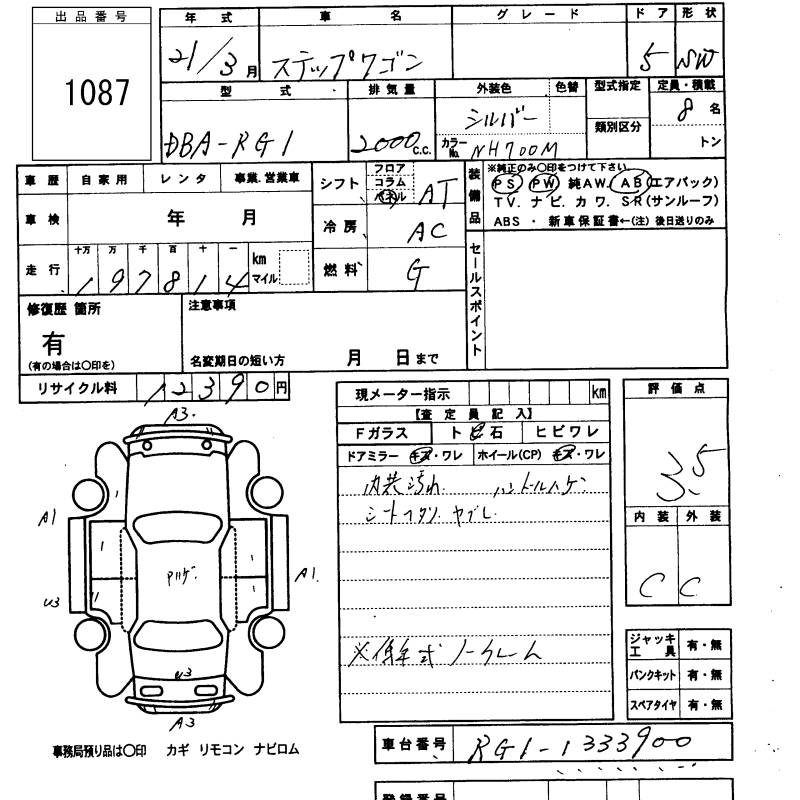 出品番号
1087
年式 車名 グレード ドア 形状
21/3月 ステップワゴン 5 SW
型式 排気量 外装色 色替 型式指定 定員・積載
DBA-RG1 2000c.c. シルバー 類別区分 8名
カラーNo. NH700M トン
車歴 自家用 レンタ 事業.営業車
車検 年 月
走行 十万 万 千 百 十 一 km マイル
197814
シフト フロア コラム パネル AT
冷房 AC
燃料 G
装備品
※純正のみ○印をつけて下さい
PS PW 純AW. AB(エアバック)
TV. ナビ. カワ. SR(サンルーフ)
ABS ・ 新車保証書←(注)後日送りのみ
セールスポイント
修復歴 箇所
有
(有の場合は○印を)
注意事項
名変期日の短い方 月 日まで
リサイクル料 12390円
現メーター指示 km
【査定員記入】
Fガラス ト ビ 石 ヒビワレ
ドアミラー キズ・ワレ ホイール(CP) キズ・ワレ
内装汚れ ハンドルハゲ
シートヘタリ. ヤブレ
※低年式 ノークレーム
評価点
3.5
内装 外装
C C
A3.
A1
U3
Pハゲ
A1.
U3
A3
ジャッキ工具 有・無
パンクキット 有・無
スペアタイヤ 有・無
事務局預り品は○印 カギ リモコン ナビロム
車台番号 RG1-1333900
登録番号